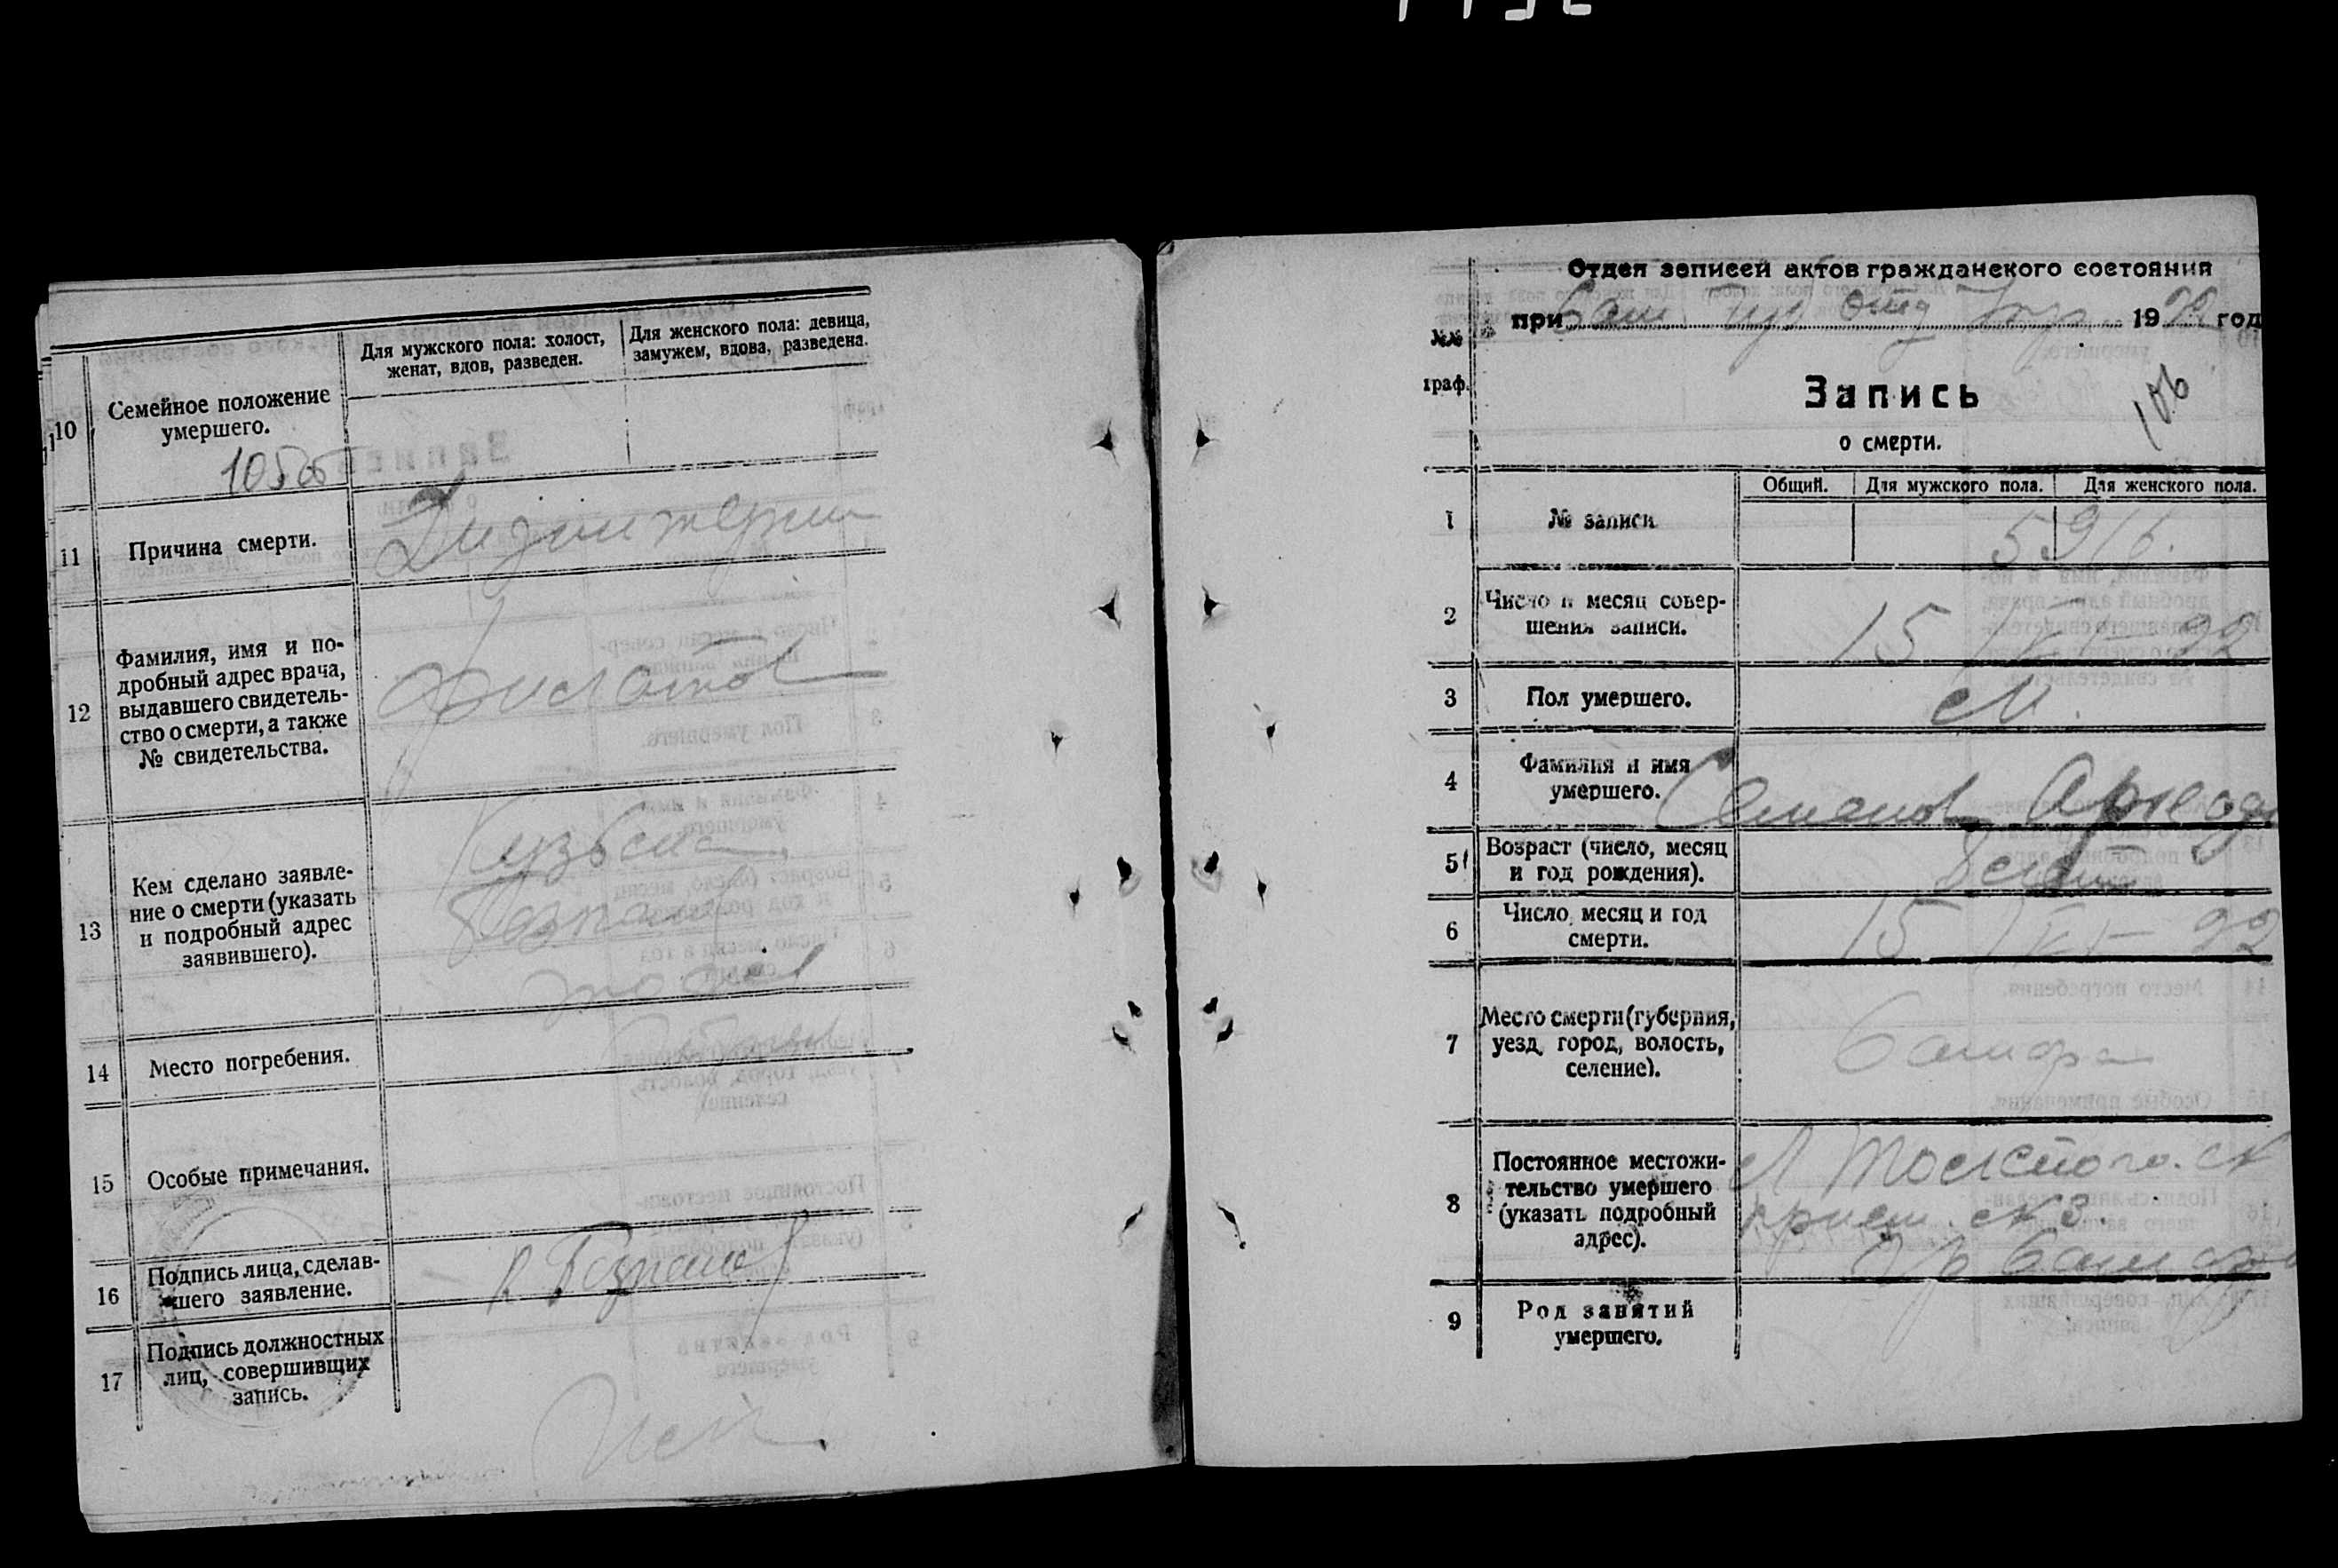 10
Семейное положение
умершего.
Для мужского пола: холост,
женат, вдов, разведен.
Для женского пола: девица,
замужем, вдова, разведена.
105об
11
Причина смерти.
Дизинтерии
12
Фамилия, имя и по-
дробный адрес врача,
выдавшего свидетель-
ство о смерти, а также
№ свидетельства.
Филатов
13
Кем сделано заявле-
ние о смерти (указать
и подробный адрес
заявившего).
Кузьма
14
Место погребения.
15
Особые примечания.
16
Подпись лица, сделав-
шего заявление.
17
Подпись должностных
лиц, совершивщих
запись.
Отдел записей актов гражданского состояния
при Сам Губ отд Упр 1922 год
№№
граф.
Запись
о смерти.
106
Общий.
Для мужского пола.
Для женского пола.
1
№ записи
5916.
2
Число и месяц совер-
шения записи.
15 22
3
Пол умершего.
М.
4
Фамилия и имя
умершего.
Семенов
5
Возраст (число, месяц
и год рождения).
6
Число, месяц и год
смерти.
15 22
7
Место смерти (губерния,
уезд, город, волость,
селение).
Самара
8
Постоянное местожи-
тельство умершего
(указать подробный
адрес).
Л Толстого
прием. №3.
гр Самара
9
Род занятий
умершего.